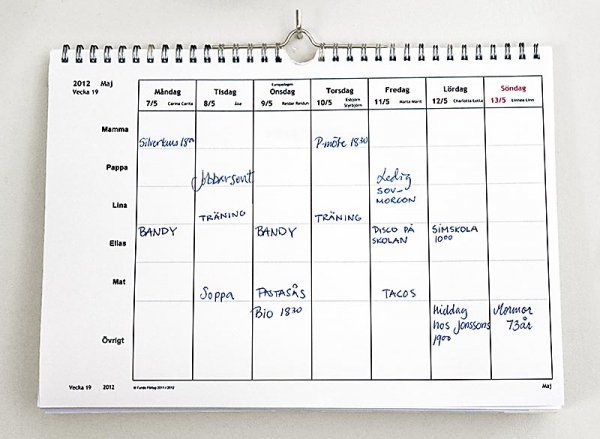 2012 Maj
Vecka 19
Måndag
7/5 Carina Carita
Tisdag
8/5 Åke
Europadagen
Onsdag
9/5 Reidar Reidun
Torsdag
10/5 Esbjörn Styrbjörn
Fredag
11/5 Märta Märit
Lördag
12/5 Charlotta Lotta
Söndag
13/5 Linnea Linn
Mamma
Silverkurs 1800
P-möte 1830
Pappa
Jobbar sent
Ledig
SOV-
MORGON
Lina
TRÄNING
TRÄNING
Elias
BANDY
BANDY
DISCO PÅ
SKOLAN
SIMSKOLA
1000
Mat
Soppa
PASTASÅS
TACOS
Övrigt
Bio 1830
Middag
hos Jonssons
1900
Mormor
73 år
Vecka 19 2012
Maj